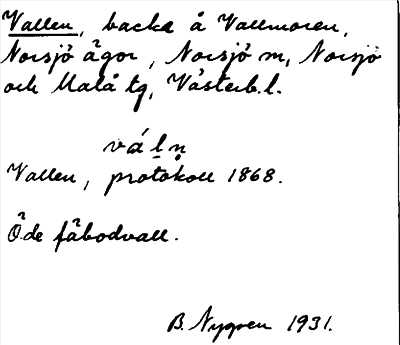 Vallen, backe å Vallmoren,
Norsjö ägor, Norsjö sn, Norsjö
och Malå tg, Västerb. l.
váḷṇ
Vallen, protokoll 1868.
Öde fäbodvall.
B. Nygren 1931.